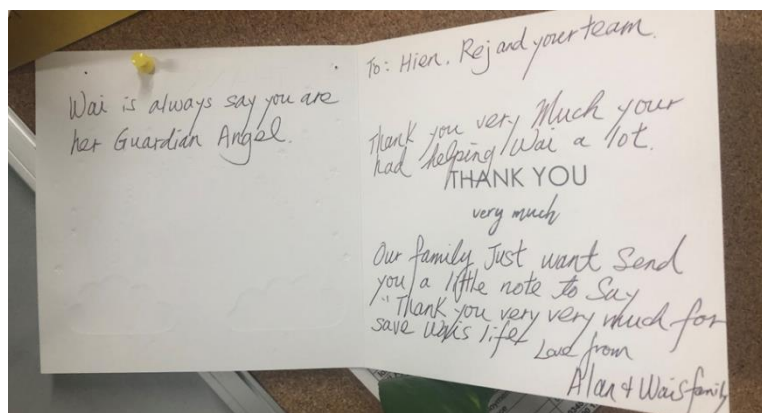 Wai is always say you are
her Guardian Angel.
To: Hien. Rej and your team.
Thank you very Much your
had helping Wai a lot.
THANK YOU
very much
Our family Just want Send
you a little note to Say
"Thank you very very much for
save Wai's life!
Love from
Alan & Wai's family